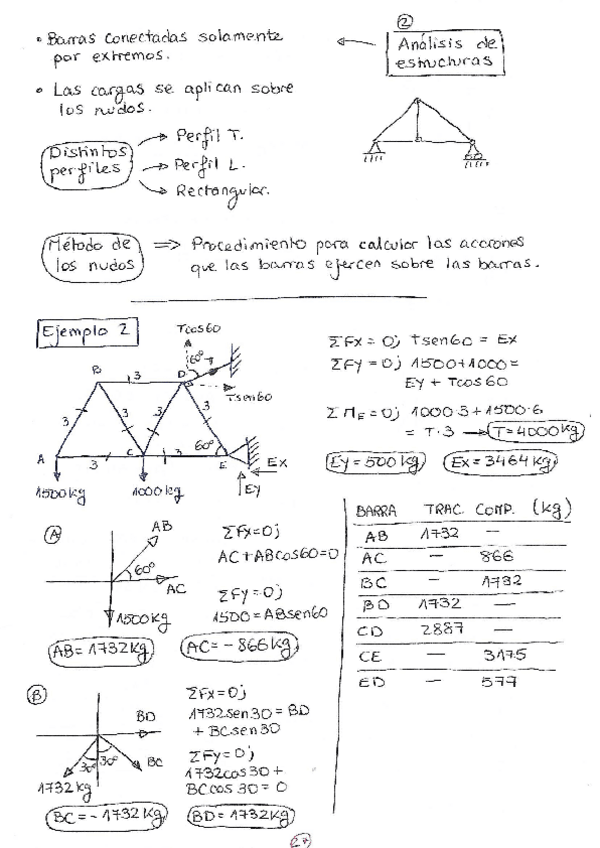 ②
Análisis de
estructuras
• Barras conectadas solamente
por extremos.
• Las cargas se aplican sobre
los nudos.
Distintos
perfiles
→ Perfil T.
→ Perfil L.
→ Rectangular.
Método de
los nudos
⇒ Procedimiento para calcular las acciones
que las barras ejercen sobre las barras.
Ejemplo 2
Tcos60
60° T
B
3
D
Tsen60
3
3
3
3
60°
A
3
C
3
E
Ex
1500kg
1000kg
Ey
ΣFx = 0; Tsen60 = Ex
ΣFy = 0; 1500+1000 =
Ey + Tcos60
ΣME = 0; 1000·3+1500·6
= T·3 → T=4000kg
Ey=500kg
Ex=3464kg
A
AB
60°
AC
1500kg
ΣFx=0;
AC+ABcos60=0
ΣFy=0;
1500=ABsen60
AB=1732kg
AC=-866kg
B
BD
30° 30°
BC
1732kg
ΣFx=0;
1732sen30=BD
+ BCsen30
ΣFy=0;
1732cos30+
BCcos30=0
BC=-1732kg
BD=1732kg
BARRA TRAC. COMP. (kg)
AB 1732 —
AC — 866
BC — 1732
BD 1732 —
CD 2887 —
CE — 3175
ED — 577
27